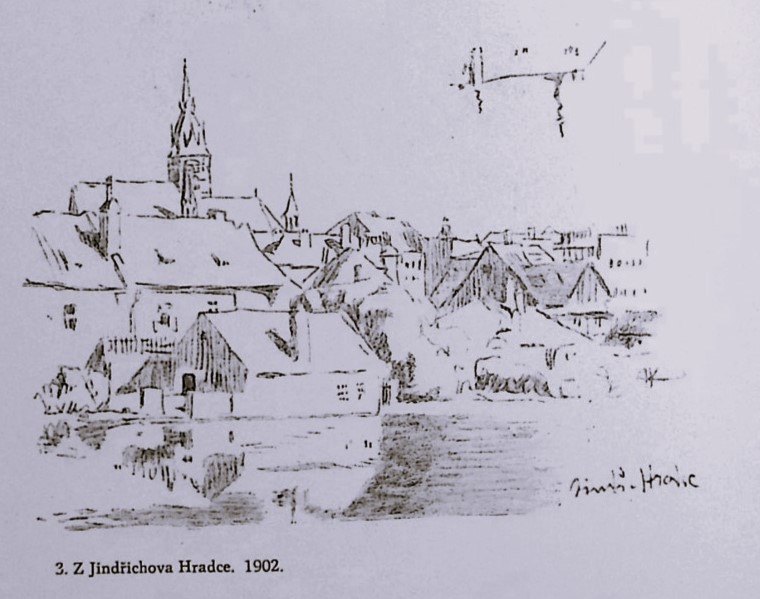 Jindř. Hradec
3. Z Jindřichova Hradce. 1902.